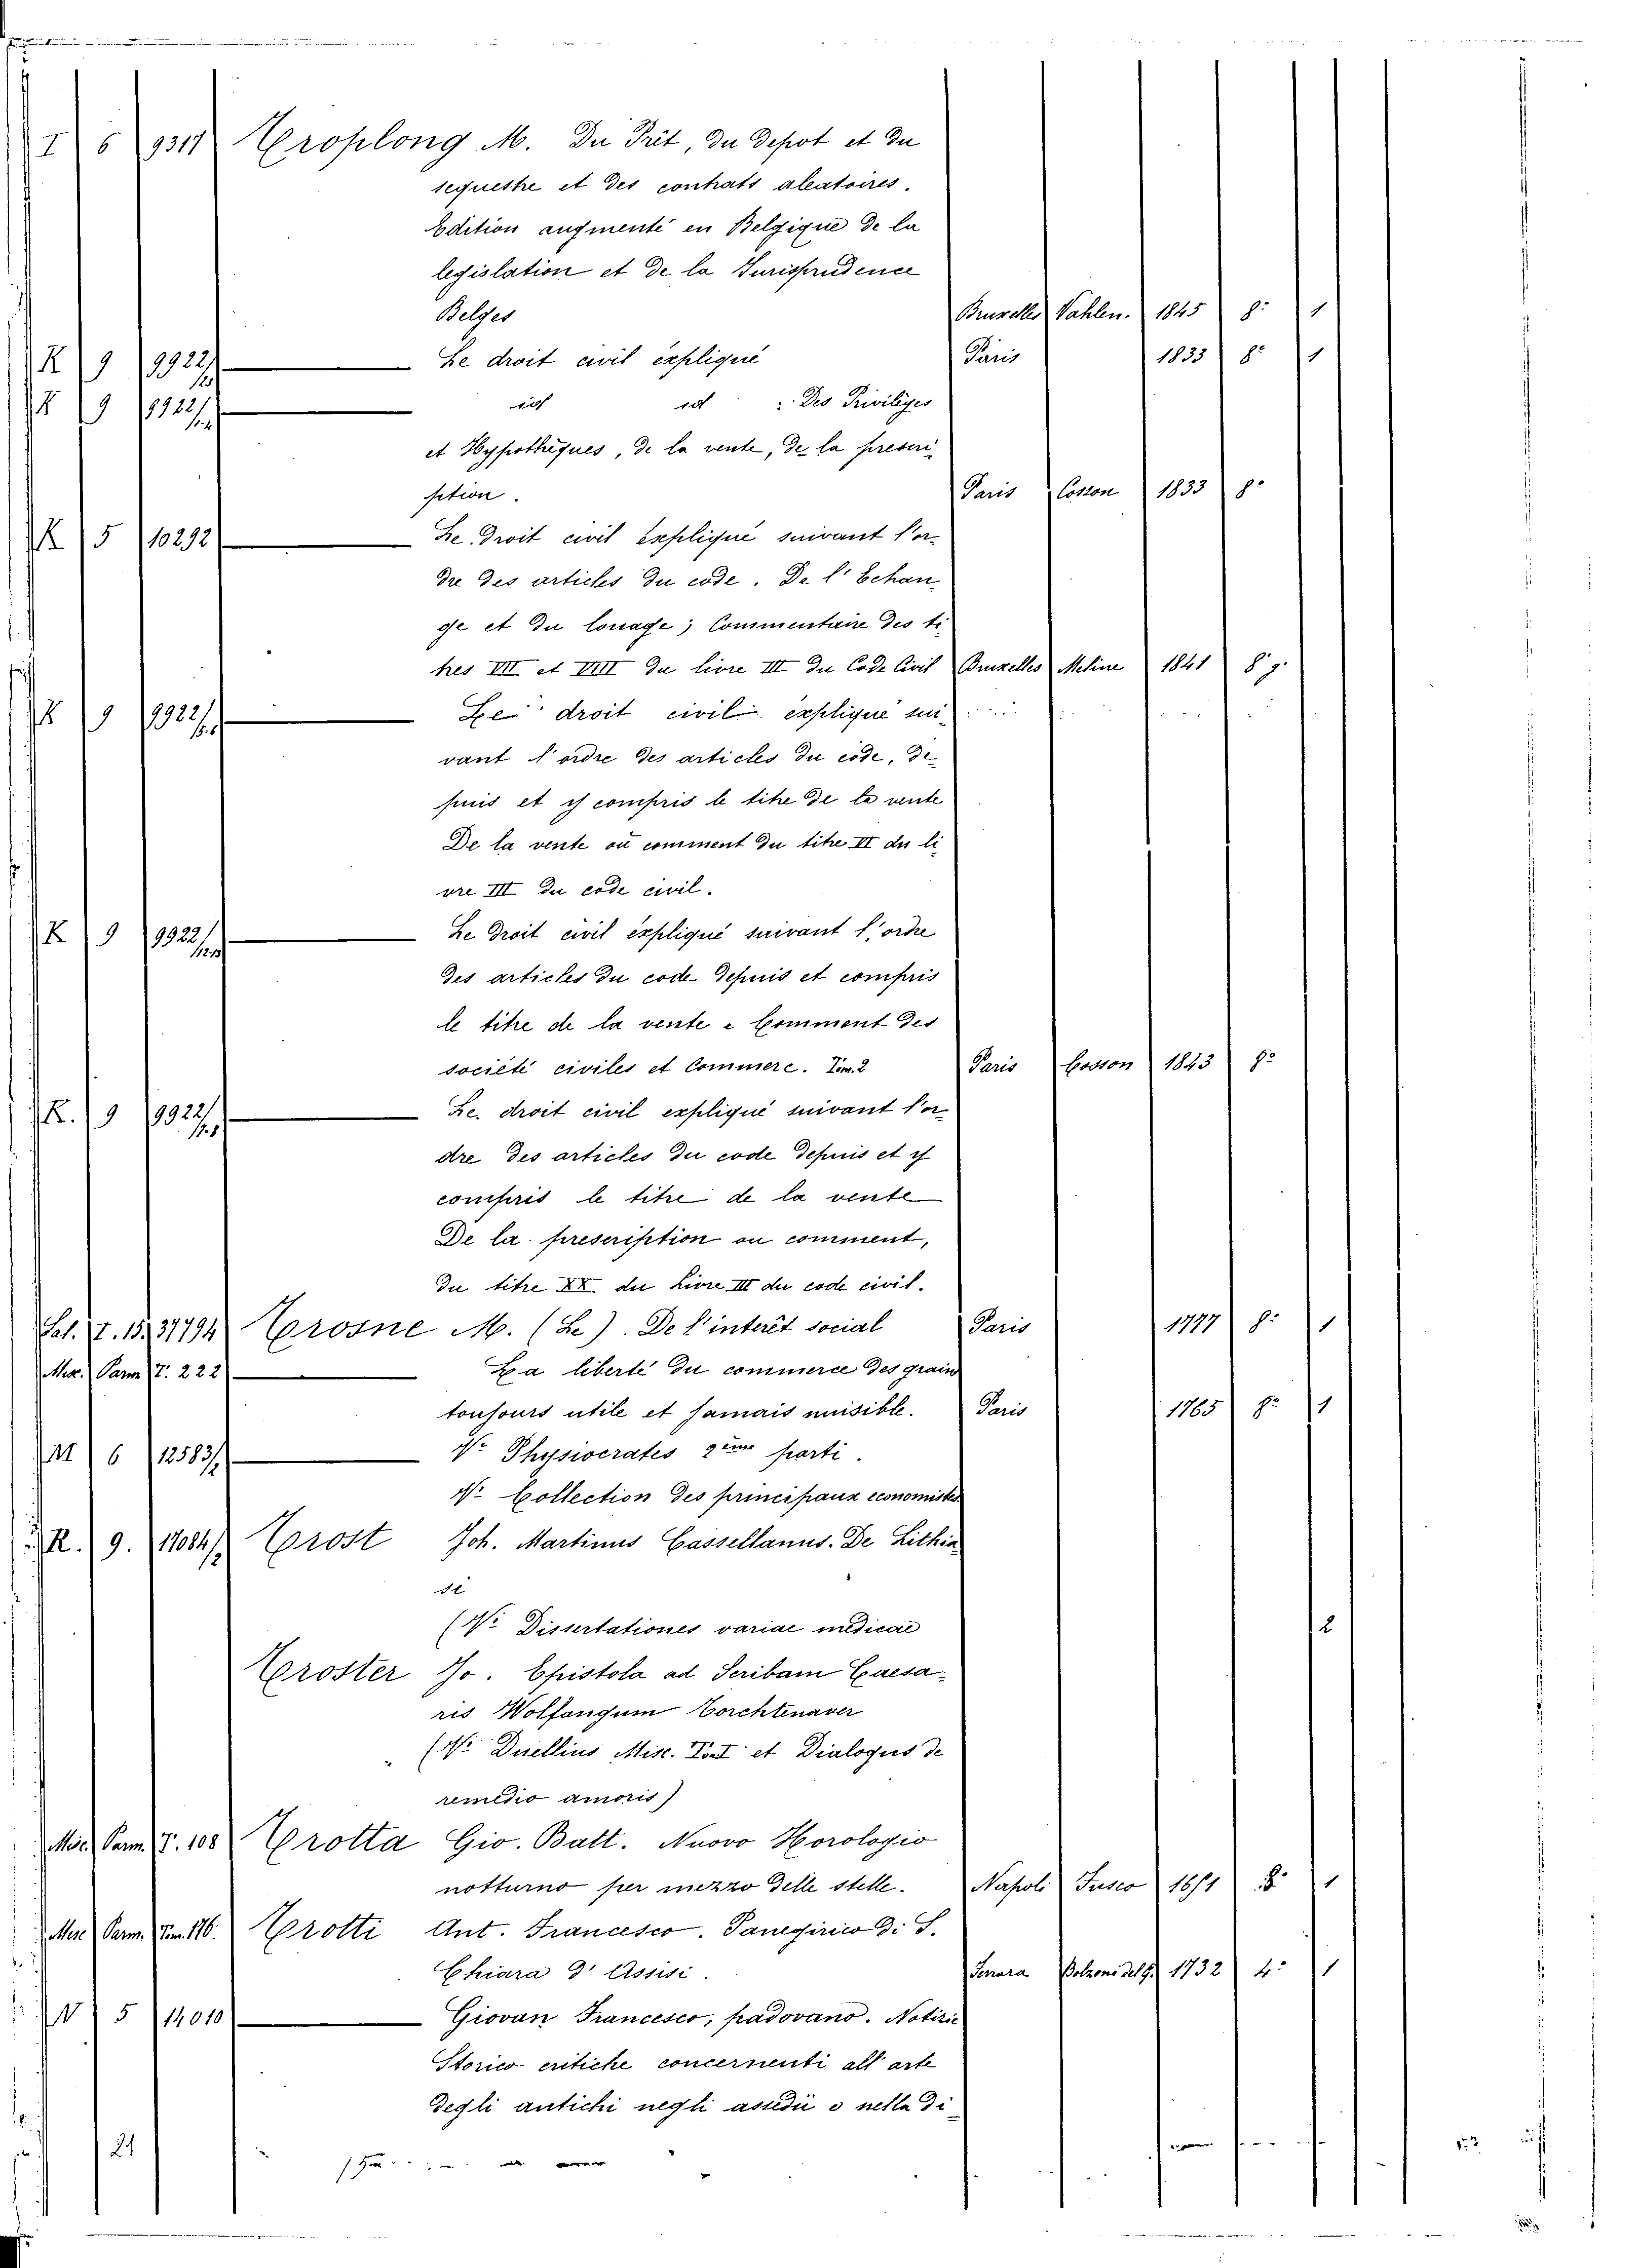 I 6 9311 Troplong M. Du Prêt, Du Depot et Du
sequestre et des contrats aleatoires.
Edition augmenté en Belgique De la
legislation et De la Jurisprudence
Belges Bruxelles Vahlen. 1845 8º 1
K 9 9922/ Le droit civil expliqué Paris 1833 8º 1
K 9 9922/ id id : Des Priviliges
et Hypothèques, de la vente, de la prescri-
ption. Paris Cosson 1833 8º
K 5 10292 Le Droit civil expliqué suivant l'or-
dre des articles du code. De l'Echan-
ge et Du louage; Commentaire des ti-
tres VII et VIII Du livre III Du Code Civil Bruxelles Meline 1841 8º g.
K 9 9922/ Le droit civil expliqué sui-
vant l'ordre des articles du code, de-
puis et y compris le titre De la vente
De la vente ou comment Du titre II du li-
vre III Du code civil.
K 9 9922/ Le Droit civil expliqué suivant l'ordre
des articles Du code depuis et compris
le titre de la vente e Comment des
société civiles et Commerc. Tom. 2 Paris Cosson 1843 8º
K. 9 9922/ Le droit civil expliqué suivant l'or-
dre des articles Du code depuis et y
compris le titre de la vente
De la prescription ou comment,
Du titre XX du Livre III du code civil.
Sal. I. 15. 37794 Trosne M. (Le). De l'interêt social Paris 1777 8º 1
Misc. Parm T. 222 La liberté Du commerce des grains
toujours utile et jamais nuisible. Paris 1765 8º 1
M 6 12583/2 Vº Physiocrates 2ème parti.
Vº Collection des principaux economistes
R. 9. 17084/2 Trost Joh. Martinus Cassellanus. De Lithia-
si
(Vº Dissertationes variae medicae 2
Troster Jo. Epistola ad Scribam Caesa-
ris Wolfangum Forchtenaver
(Vº Duellius Misc. Tom I et Dialogus de
remedio amoris)
Misc. Parm. T. 108 Trotta Gio. Batt. Nuovo Horologio
notturno per mezzo delle stelle. Napoli Fusco 1651 8º 1
Misc. Parm. Tom. 176. Trotti Ant. Francesco. Panegirico di S.
Chiara d'Assisi. Ferrara Bolzoni del g. 1732 4º 1
V 5 14010 Giovan Francesco, padovano. Notizie
Storico critiche concernenti all'arte
degli antichi negli assedii o nella di-
21